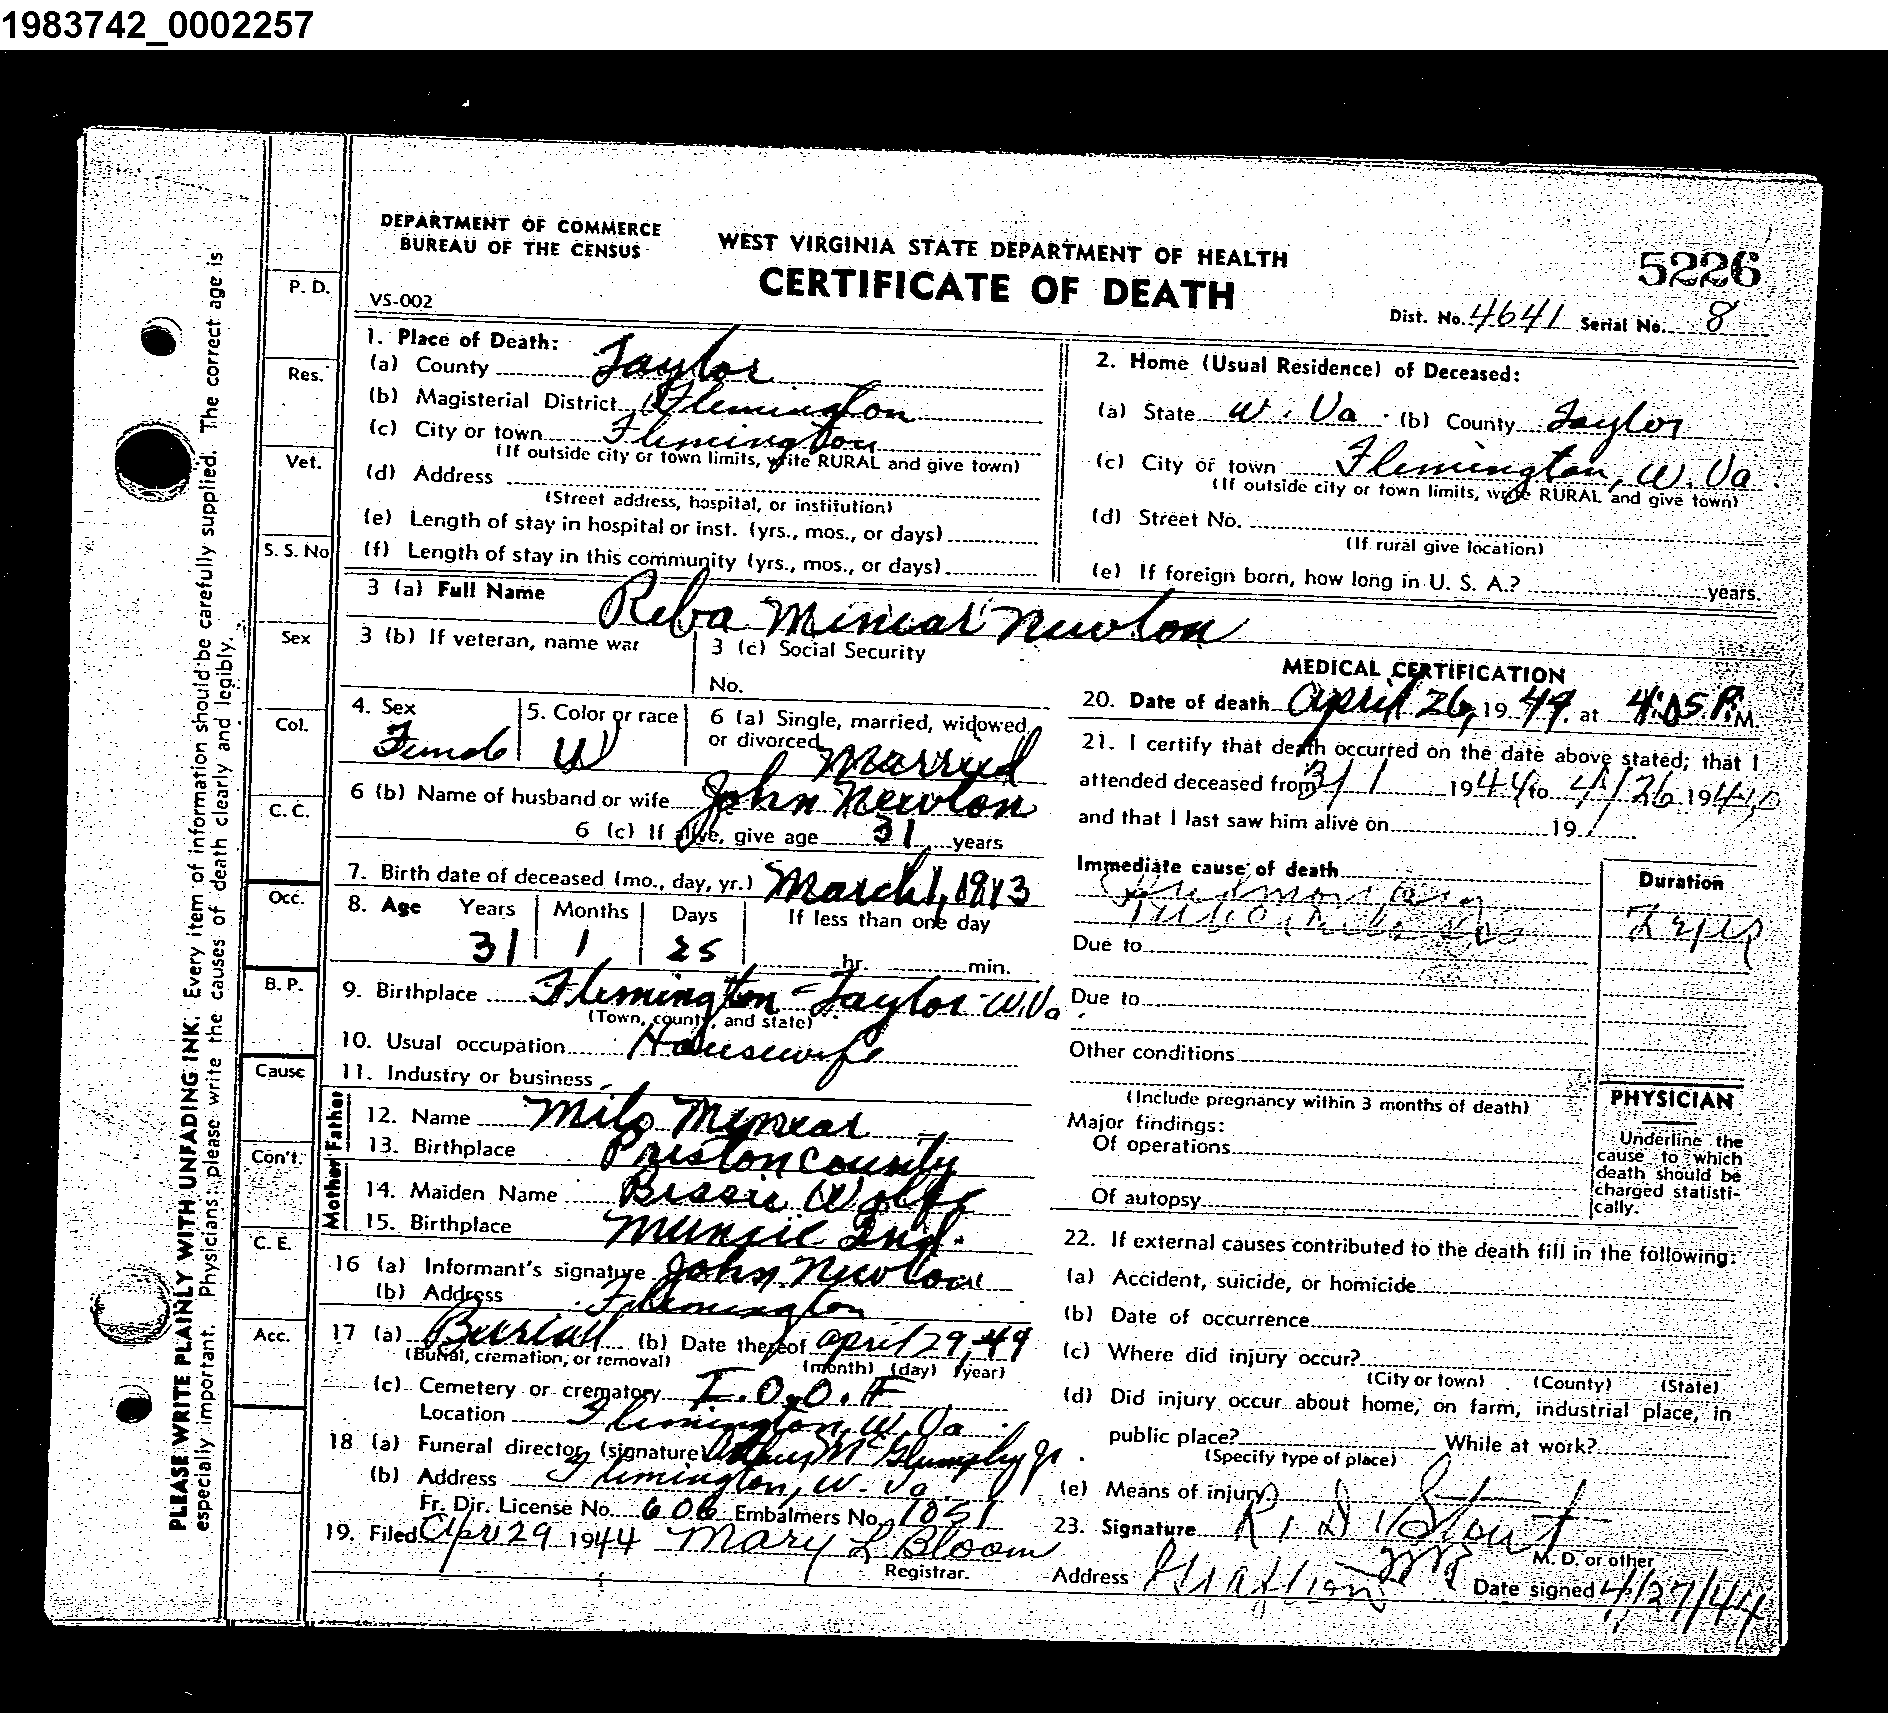 1983742_0002257
DEPARTMENT OF COMMERCE
BUREAU OF THE CENSUS
WEST VIRGINIA STATE DEPARTMENT OF HEALTH
CERTIFICATE OF DEATH
5226
VS-002
Dist. No. 4641 Serial No. 8
PLEASE WRITE PLAINLY WITH UNFADING INK. Every item of information should be carefully supplied. The correct age is
especially important. Physicians: please write the causes of death clearly and legibly.
P. D.
Res.
Vet.
S. S. No
Sex
Col.
C. C.
Occ.
B. P.
Cause
Con't.
C. E.
Acc.
1. Place of Death:
(a) County Taylor
(b) Magisterial District Flemington
(c) City or town Flemington
(If outside city or town limits, write RURAL and give town)
(d) Address
(Street address, hospital, or institution)
(e) Length of stay in hospital or inst. (yrs., mos., or days)
(f) Length of stay in this community (yrs., mos., or days)
2. Home (Usual Residence) of Deceased:
(a) State W. Va. (b) County Taylor
(c) City or town Flemington, W. Va.
(If outside city or town limits, write RURAL and give town)
(d) Street No.
(If rural give location)
(e) If foreign born, how long in U. S. A.? years.
3 (a) Full Name Reba Minear Newlon
3 (b) If veteran, name war
3 (c) Social Security
No.
4. Sex
Female
5. Color or race
W
6 (a) Single, married, widowed
or divorced Married
6 (b) Name of husband or wife John Newlon
6 (c) If alive, give age 31 years
7. Birth date of deceased (mo., day, yr.) March 1, 1913
8. Age Years Months Days If less than one day
31 1 25 hr. min.
9. Birthplace Flemington - Taylor - W.Va.
(Town, county, and state)
10. Usual occupation Housewife
11. Industry or business
Father
12. Name Milo Minear
13. Birthplace Preston County
Mother
14. Maiden Name Bessie Wolfe
15. Birthplace Muncie Ind.
16 (a) Informant's signature John Newlon
(b) Address Flemington
17 (a) Burial (b) Date thereof April 29, 44
(Burial, cremation, or removal) (month) (day) (year)
(c) Cemetery or crematory I.O.O.F
Location Flemington, W. Va.
18 (a) Funeral director (signature) McGlumphy Jr.
(b) Address Flemington, W. Va.
Fr. Dir. License No. 606 Embalmers No. 1051
19. Filed Apr 29 1944 Mary L Bloom
Registrar.
MEDICAL CERTIFICATION
20. Date of death April 26, 1944. at 4:05 P. M.
21. I certify that death occurred on the date above stated; that I
attended deceased from 3/1 1944 to 4/26 1944
and that I last saw him alive on 19
Immediate cause of death
Pulmonary
Tuberculosis
Duration
2 yrs
Due to
Due to
Other conditions
(Include pregnancy within 3 months of death)
Major findings:
Of operations
Of autopsy
PHYSICIAN
Underline the
cause to which
death should be
charged statisti-
cally.
22. If external causes contributed to the death fill in the following:
(a) Accident, suicide, or homicide
(b) Date of occurrence
(c) Where did injury occur?
(City or town) (County) (State)
(d) Did injury occur about home, on farm, industrial place, in
public place? While at work?
(Specify type of place)
(e) Means of injury
23. Signature R. D. Stout
M. D. or other
Address Grafton Date signed 4/27/44